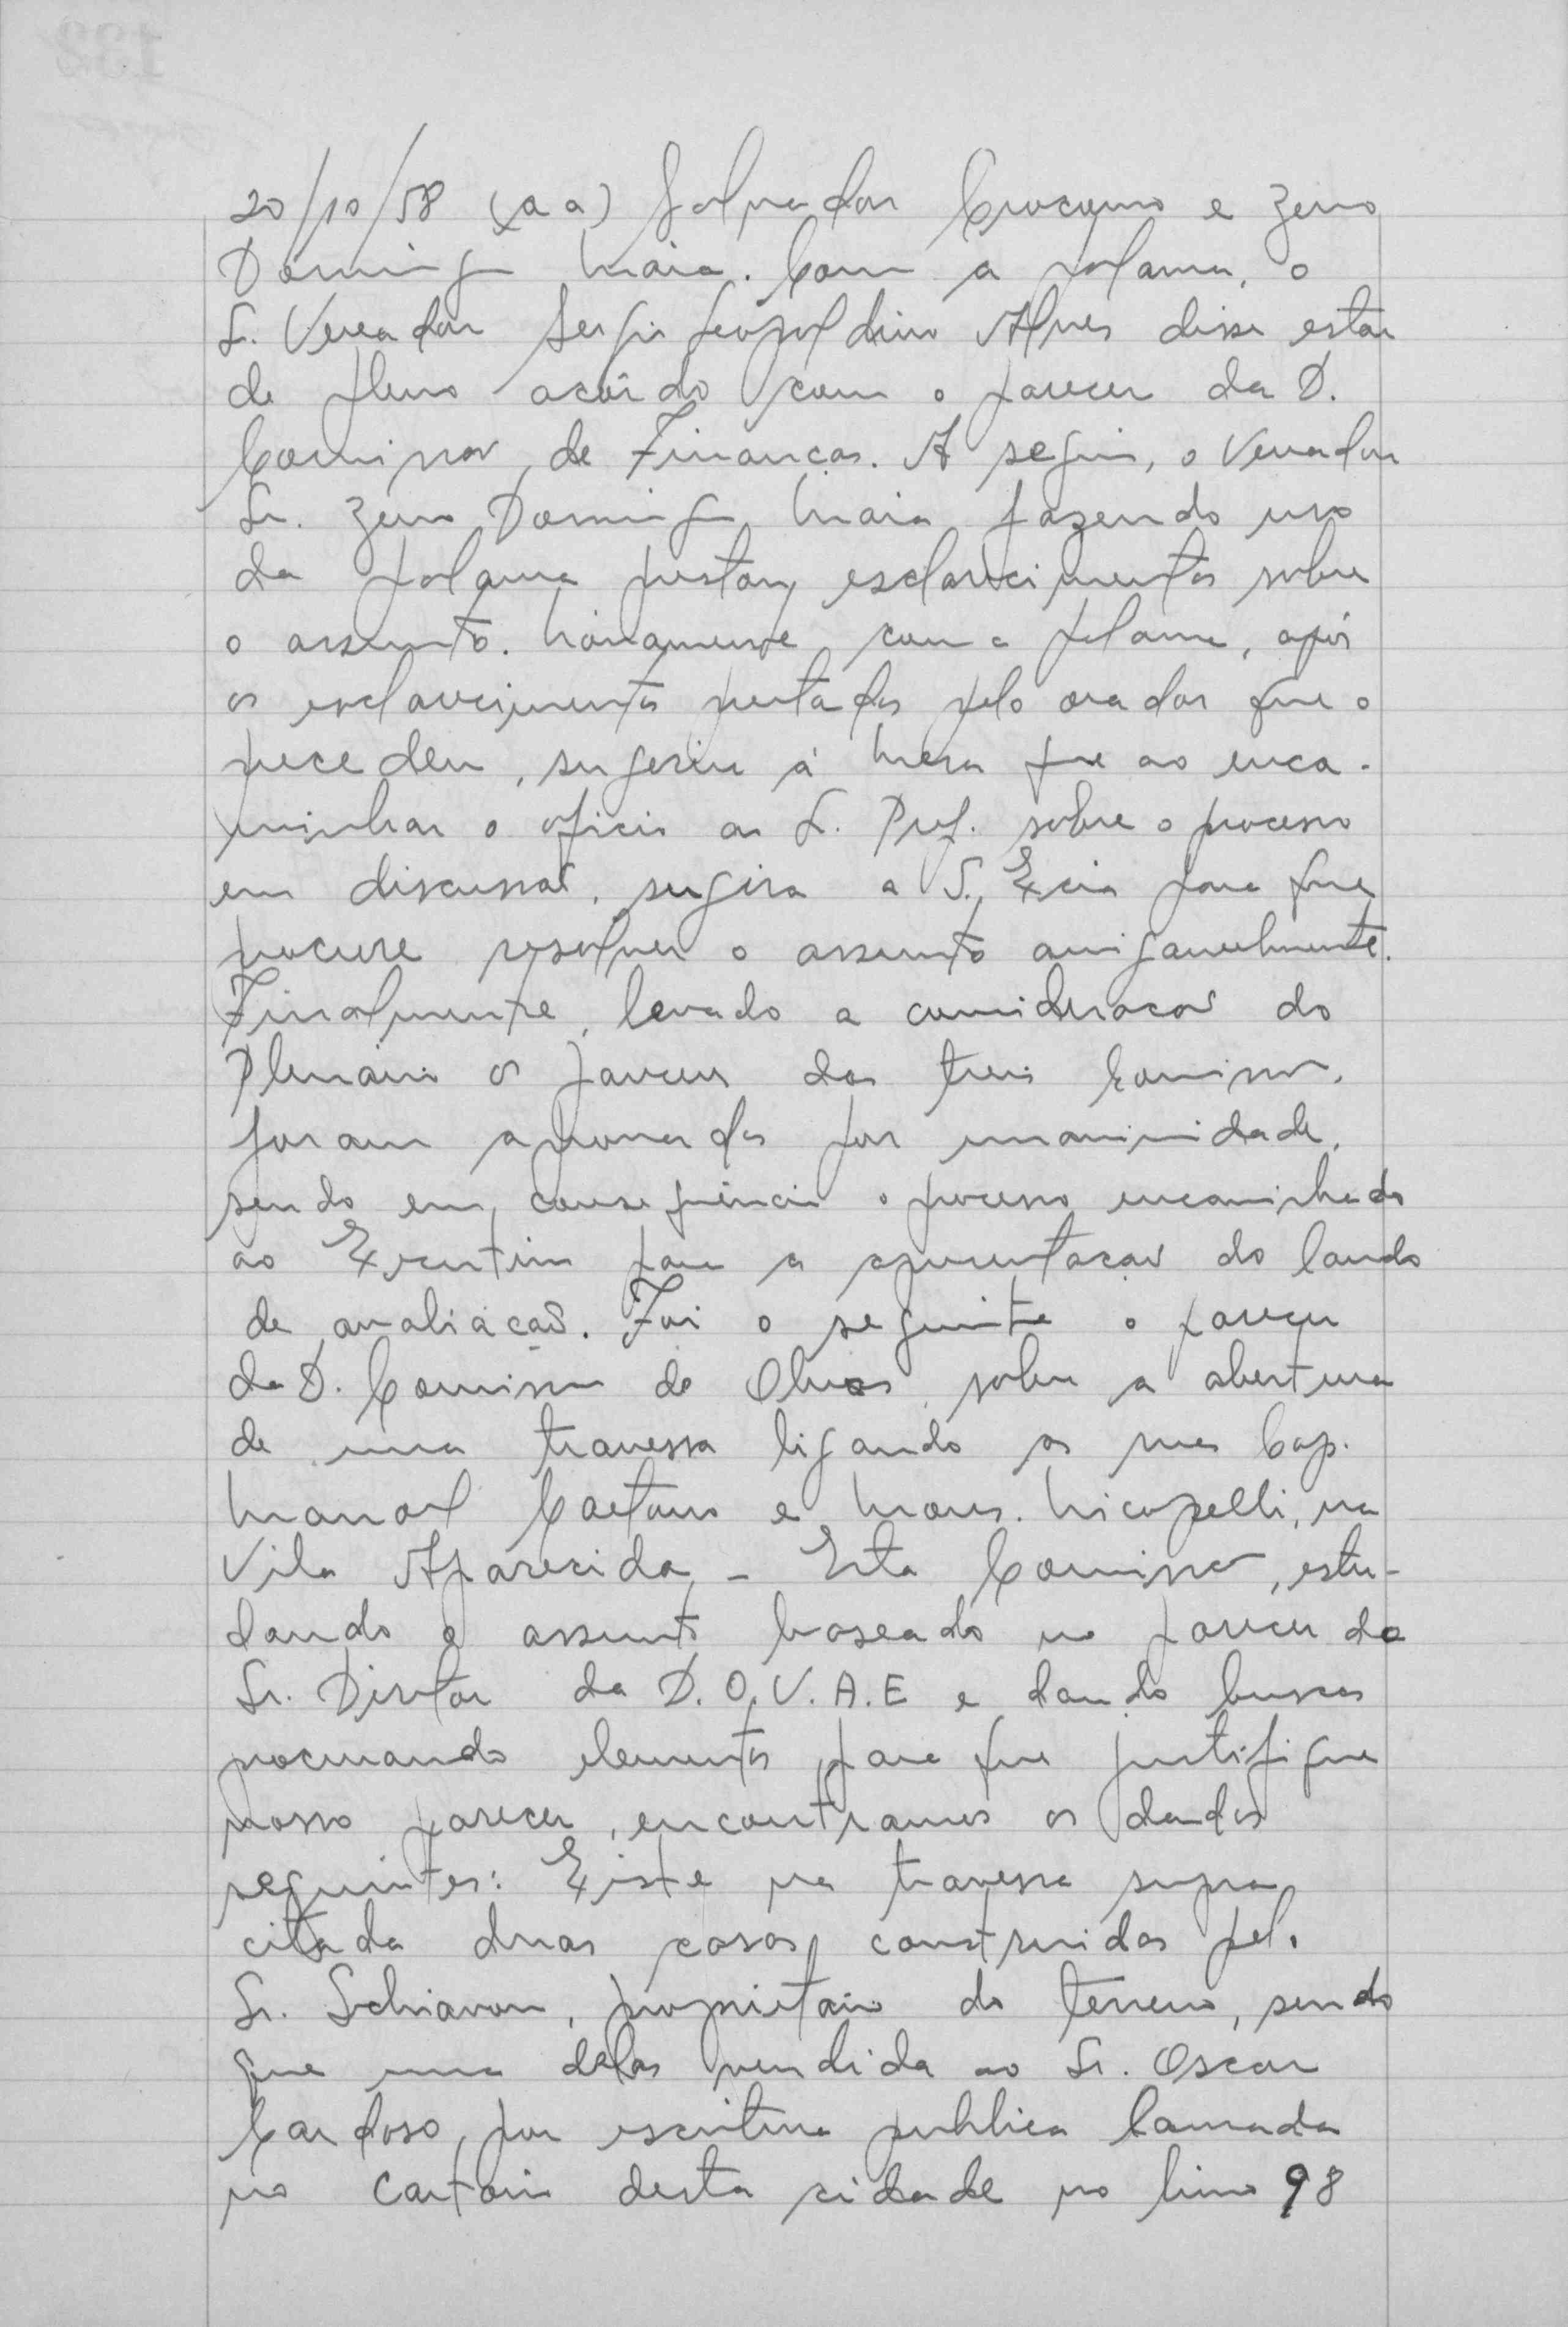 20/10/58 (a a) Salvador Crocomo e Zeno
Domingos Maia. Com a palavra, o
Sr. Vereador Sergio Leopoldino Alves disse estar
de pleno acôrdo com o parecer da D.
Comissão de Finanças. A seguir, o Vereador
Sr. Zeno Domingos Maia fazendo uso
da palavra prestou esclarecimentos sobre
o assunto. Novamente com a palavra, após
os esclarecimentos prestados pelo orador que o
precedeu, sugeriu á Mesa que ao enca-
minhar o oficio ao Sr. Pref. sobre o processo
em discussão, sugira a S. Excia para que
procure resolver o assunto amigavelmente.
Finalmente, levado a consideração do
Plenário os parecer das tres Comissões,
foram aprovados por unanimidade,
sendo em consequência o processo encaminhado
ao Executivo para a apresentação do laudo
de avaliação. Foi o seguinte o parecer
da D. Comissão de Obras sobre a abertura
de uma travessa ligando as ruas Cap.
Manoel Caetano e Mons. Nicopelli, na
Vila Aparecida - Esta Comissão, estu-
dando o assunto baseado no parecer do
Sr. Diretor da D.O.V.A.E e dando buscas
procurando elementos para que justifique
nosso parecer, encontramos os dados
seguintes: Existe na travessa supra
citada duas casas construidas pelo
Sr. Schiavon, proprietario do terreno, sendo
que uma delas vendida ao Sr. Oscar
Cardoso, por escritura publica lavrada
no Cartorio desta cidade no livro 98